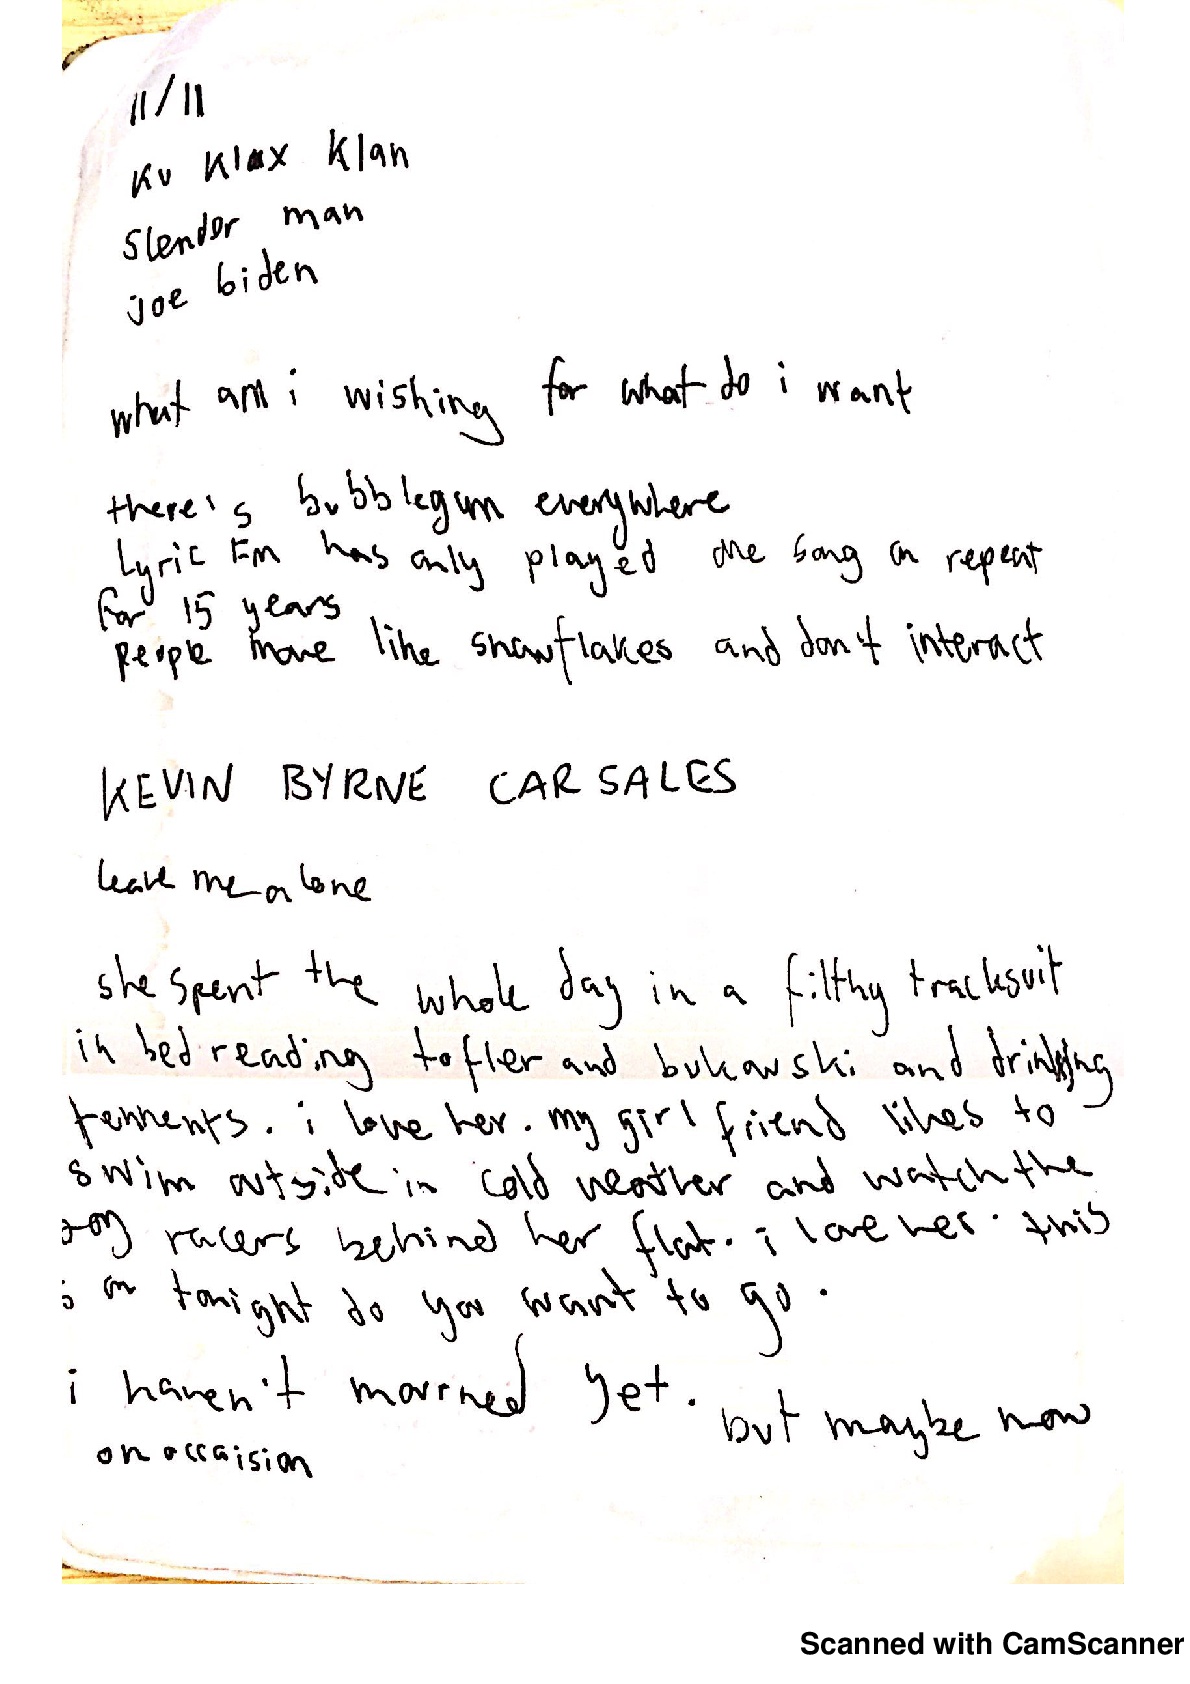 11/11
Ku Klux Klan
Slender man
joe biden
what am i wishing for what do i want
there's bubblegum everywhere
Lyric Fm has only played one song on repeat
for 15 years
people move like snowflakes and don't interact
KEVIN BYRNE CAR SALES
leave me alone
she spent the whole day in a filthy tracksuit
in bed reading tofler and bukowski and drinking
tennents. i love her. my girlfriend likes to
swim outside in cold weather and watch the
racers behind her flat. i love her. this
on tonight do you want to go.
i haven't yet. but maybe now
on occaision
Scanned with CamScanner